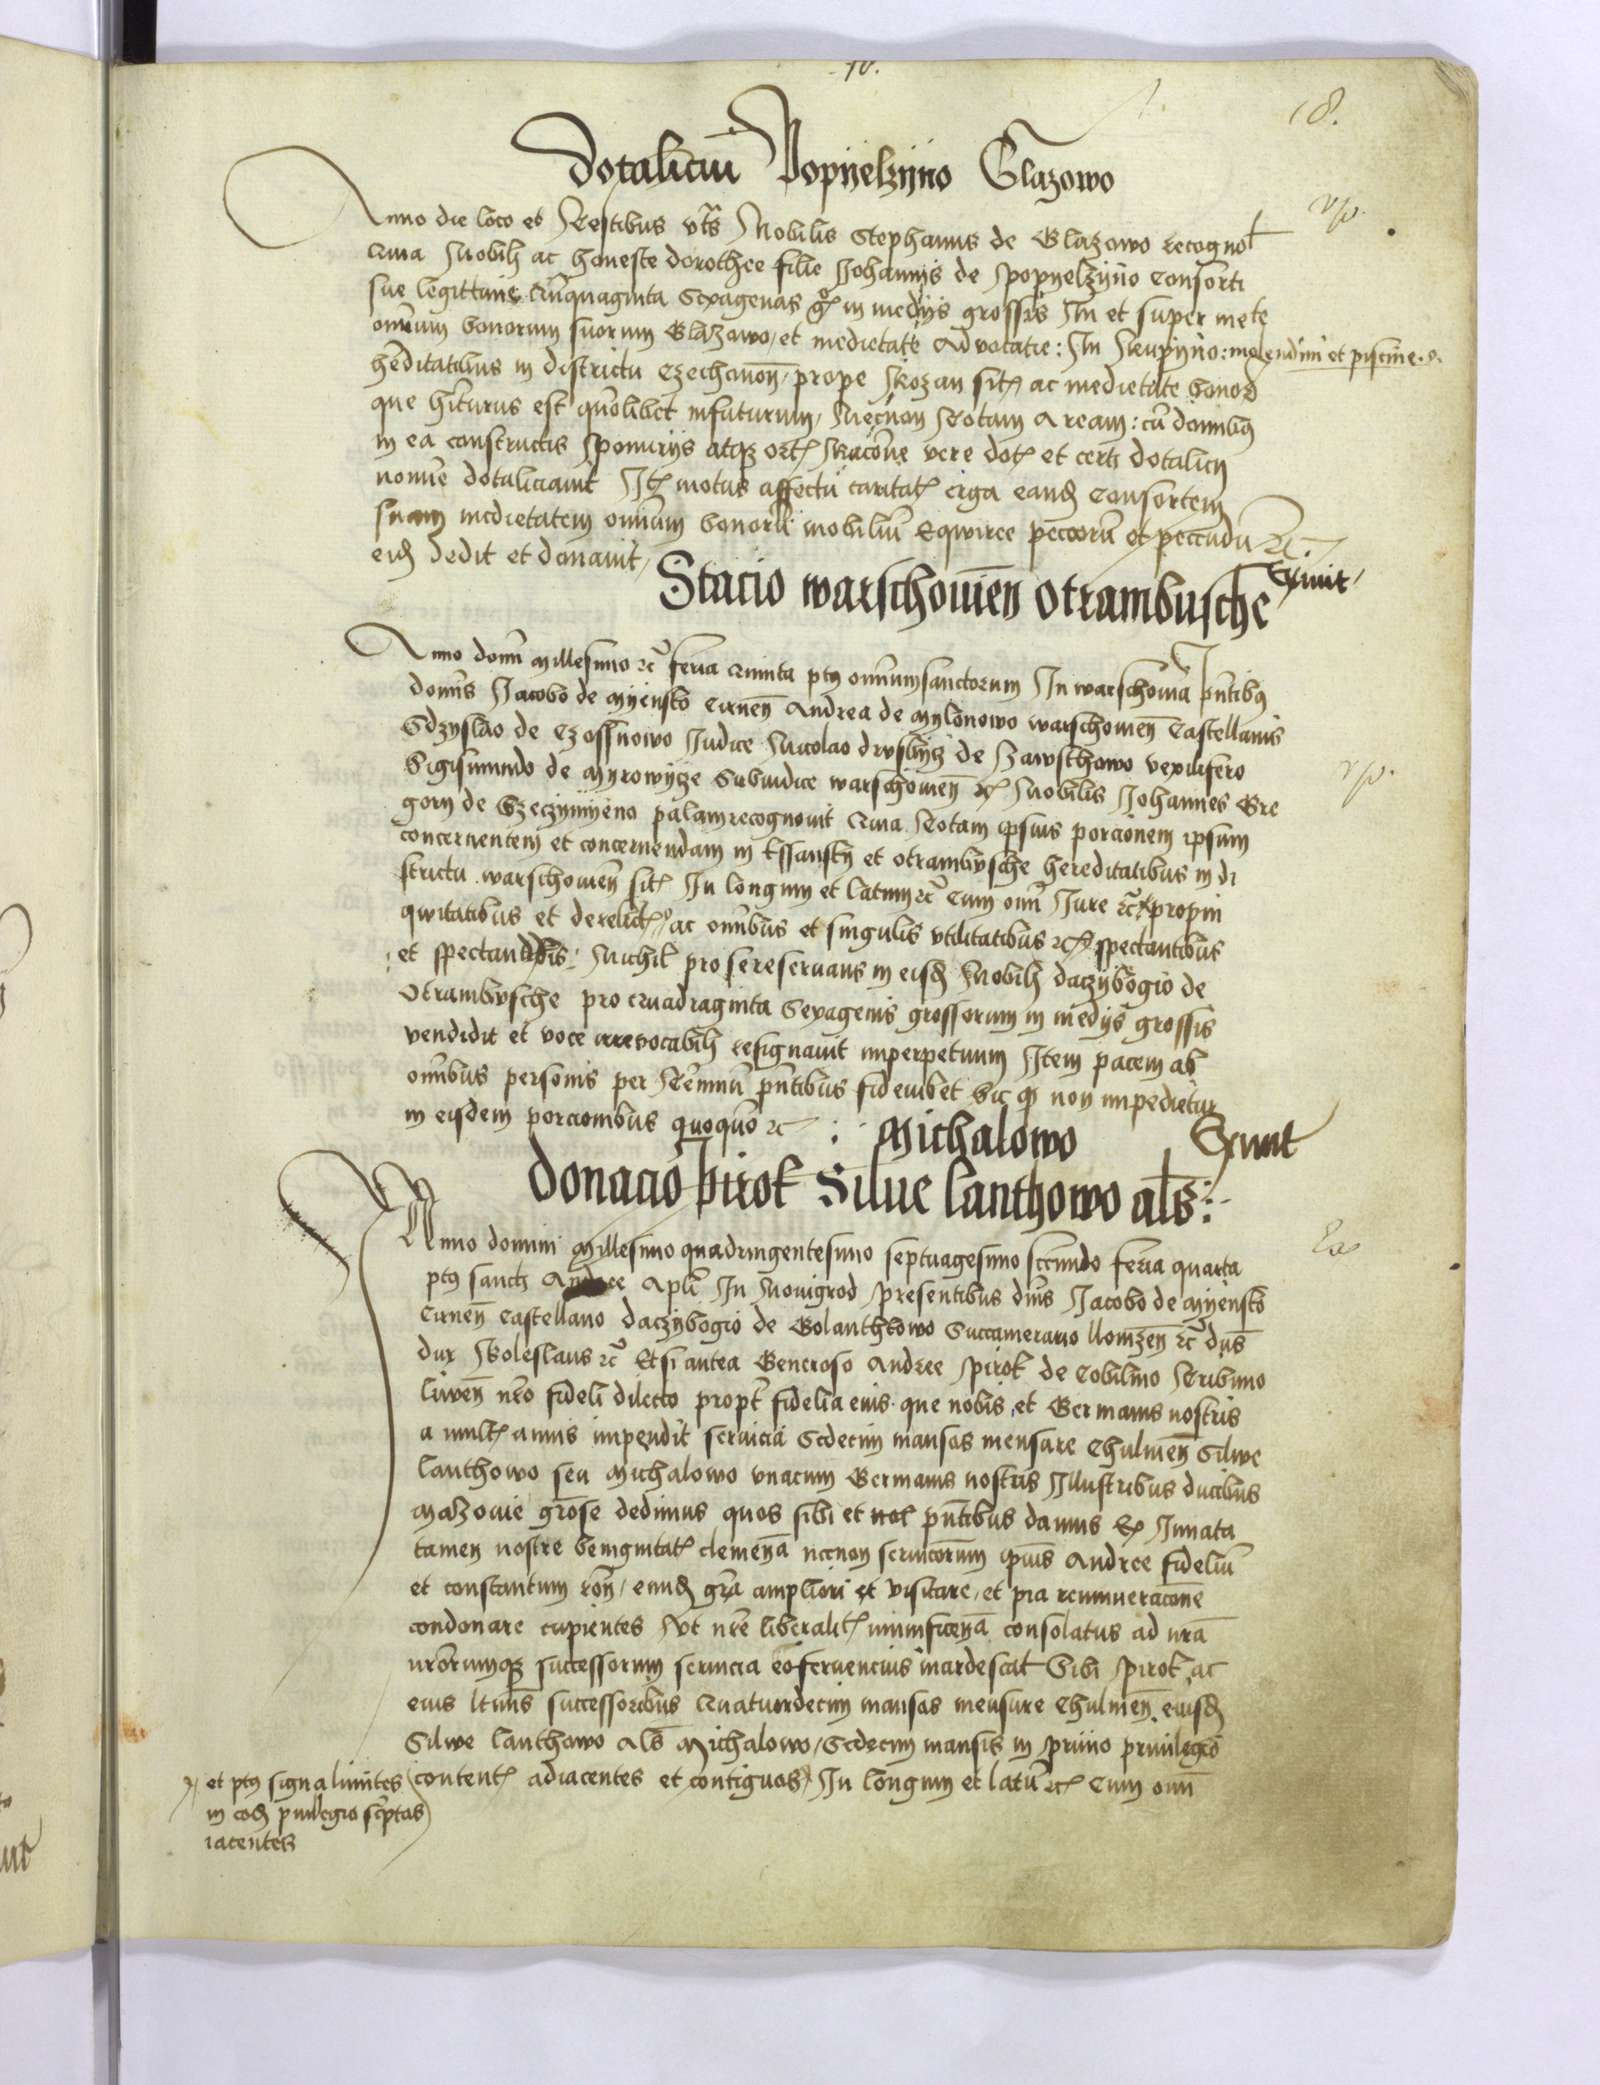 18.
Dotaliciu Popyelzyno Glazowo
Anno die loco et Testibus vts Nobilis Stephanus de Glazowo recognot
Quia Nobili ac honeste dorothee filie Johannis de Popyelzyno Consorti
sue legittime Quinquaginta Sexagenas gr in medys grossis In et super mete
omnium bonorum suorum Glazowo, et medietate Advocatie: In Krupyno: molendini et piscine
hereditatibus in districtu Czechonon, prope Rozan sit ac medietate bonor
que hiturus est quolibet infuturum, Necnon Totam Aream: cu domibus
in ea constructis Pomeriis atqz ort Racone vere dot et certi dotalicy
nomine dotaliciavit It motus affectu caritat erga eand Consortem
suam medietatem omnium bonoru mobiliu Eqwiree peccoru et peccudu etc.
eid dedit et donavit,
Exivit,
Stacio warschowien Otrambusche
Anno domi Millesimo etc feria Quinta pty omniumsanctorum In warschowia pntibus
domis Jacobo de Myensko Cirnen Andrea de Mylonowo warschowien Castellanis
Sdzyslao de Czossnowo Judice Nicolao drvsbycz de Zawschowo vexillifero
Sigismundo de Myrowycze Subiudice warschowien etc Nobilis Johannes Gre
gory de Gzeczynyeno palamrecognovit Quia Totam ipsius porcionem ipsum
concernentem et concernendam in Ussansky et otrambusche hereditatibus in di
strictu warschowien sit In longum et latum etc Cum omi Jure etc propin
qwitatibus et derelict ac omibus et singulis vtilitatibus etc spectantibus
et spectandis: Nichil pro sereservans in eisd Nobili daczybogio de
Otrambusche pro Quadraginta Sexagenis grossorum in medys grossis
vendidit et voce irrevocabili resignavit imperpetuum Item pacem ab
omibus personis per Terminu pntibus fideiubet Sic q non impedietur
in eisdem porcionibus quoquo etc
Michalowo
Exivit
Donacio pirot Silue lanthowo als:
Anno domini Millesimo quadringentesimo septuagesimo secundo feria quarta
pty sancti Andree Apli In Novigrod Presentibus dnis Jacobo de Myensko
Cirnen Castellano daczybogio de Golanthowo Succamerario llomzen etc dns
dux Boleslaus etc Etsi antea Generoso Andree Pirot de Cobilino Tribuno
liwen nro fideli dilecto propt fidelia eius que nobis et Germanis nostris
a mult annis impendit servicia Sedecim mansos mensure Chulmen Silwe
lanthowo seu Michalowo vnacum Germanis nostris Illustribus ducibus
Mazovie grose dedimus quos sibi et pntibus damus Ex Innata
tamen nostre benignitat clemencia necnon serviciorum ipsius Andree fideliu
et constantum ron, eund gra ampliori et visitare, et pia remuneracione
condonare cupientes Vt nre liberalit munificencia consolatus ad nra
nrorumqz successorum servicia eo fervencius inardescat Sibi Pirot ac
eius ltimis successoribus Quatuordecim mansos mensure Chulmen eiusd
Silwe lanthowo Als Michalowo, Sedecim mansis in primo privilegio
content adiacentes et contiguos In longum et latu etc Cum omi
et pty signa limites
in eod privilegio scriptas
iacentes